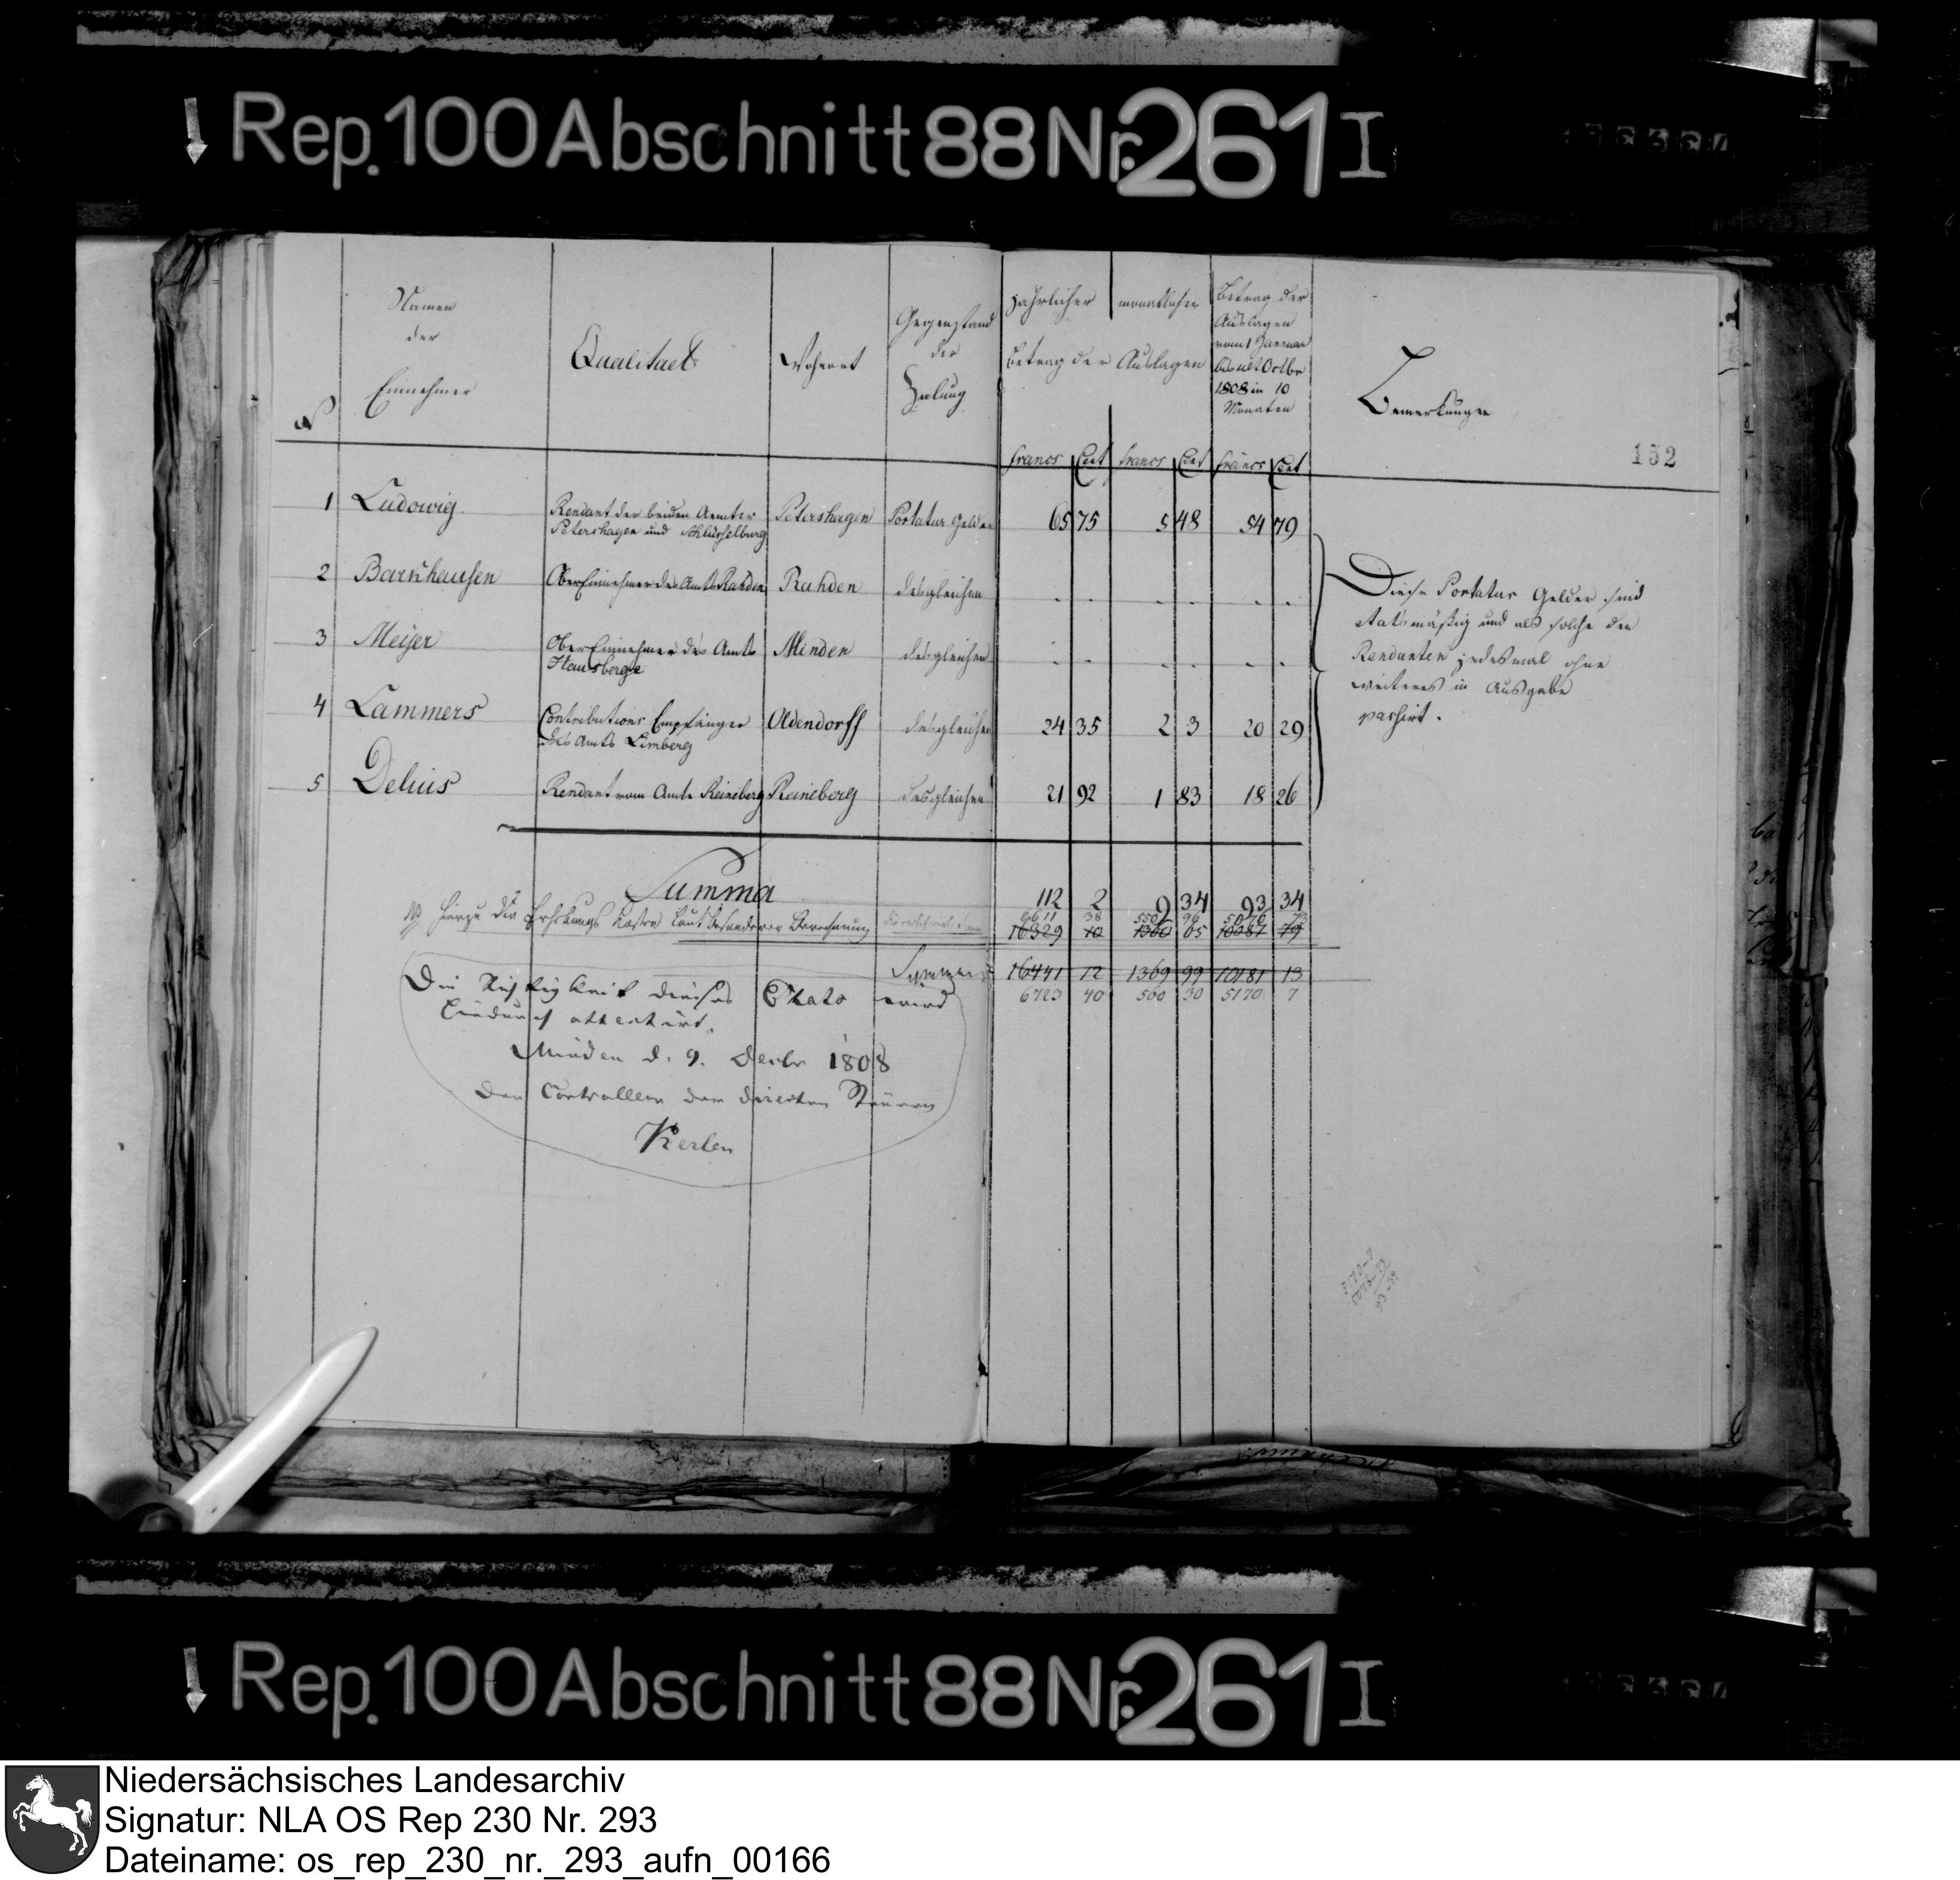 Rep. 100 Abschnitt 88 Nr. 261 I
Namen der Einnehmer
Qualitaet
Wohnort
Gegenstand der Zalung
jährlicher monatlicher
Betrag der Auslagen
Betrag der
Auslagen
vom 1 Januar
bis ult Octbr
1808 in 10
Monaten
Bemerkungen
152
francs Cent francs Cent francs Cent
1 Ludowig Rendant der beiden Aemter Petershagen und Schlüsselburg Petershagen Portatur Gelder 65 75 5 48 54 79
2 Barkhausen Ober Einnehmer des Amts Rahden Rahden desgleichen - - - - - -
3 Meijer Ober Einnehmer des Amts Hausberge Minden desgleichen - - - - - -
4 Lammers Contributions Empfänger des Amts Limberg Oldendorff desgleichen 24 35 2 3 20 29
5 Delius Rendant vom Amte Reineberg Reineberg desgleichen 21 92 1 83 18 26
Diese Portatur Gelder sind
etatsmäßig und als solche den
Rendanten jedesmal ohne
weiteres in Ausgabe
passirt.
Summa 112 2 9 34 93 34
6611 38 550 96 5076 73
hierzu die Erhebungs Kosten laut besonderer Berechnung 16329 10 1360 65 10087 79
Summa 16441 12 1369 99 10181 13
6723 40 560 30 5170 7
Die Richtigkeit dieses Etats wird
hiedurch attestirt.
Minden d. 9. Decbr 1808
Der Controlleur der directen Steuern
Kerlen
5170-7
5076-73
93-34
Rep. 100 Abschnitt 88 Nr. 261 I
Niedersächsisches Landesarchiv
Signatur: NLA OS Rep 230 Nr. 293
Dateiname: os_rep_230_nr._293_aufn_00166